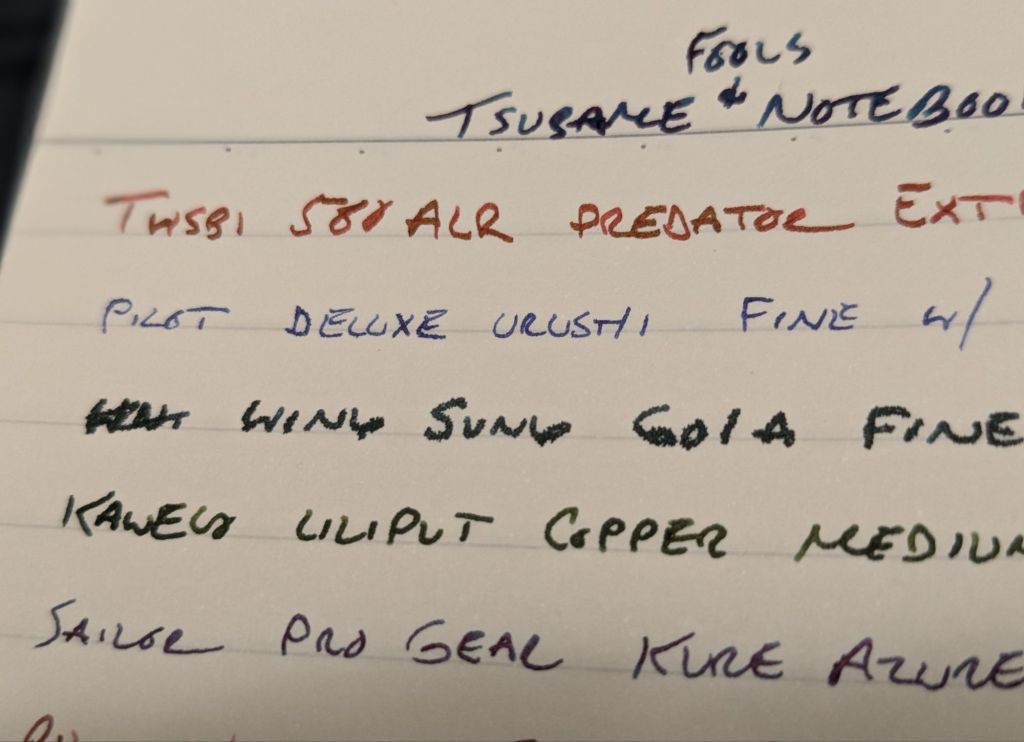 FOOLS
TSUBAME & NOTEBOO
TWSBI 580 ALR PREDATOR EXT
PILOT DELUXE URUSHI FINE W/
WING SUNG 601A FINE
KAWECO LILIPUT COPPER MEDIUM
SAILOR PRO GEAR KURE AZURE